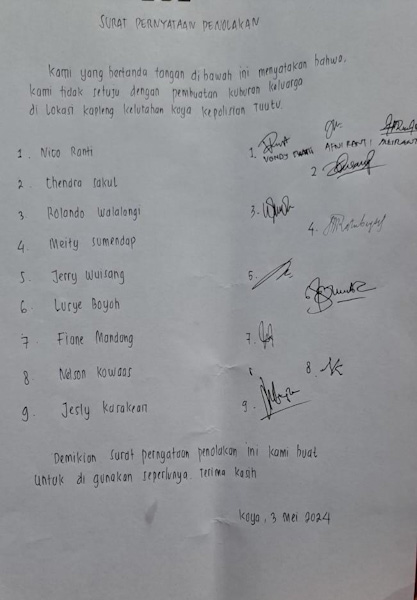 SURAT PERNYATAAN PENOLAKAN
Kami yang bertanda tangan di bawah ini menyatakan bahwa,
kami tidak setuju dengan pembuatan kuburan keluarga
di Lokasi kapleng kelurahan Koya Kepolisian Tuutu.
1. Nico Ranti 1.
AFNI RANTI
2. Chendra Sakul 2.
3 Rolando Walalangi 3.
4. Meity Sumendap 4.
5. Jerry Wuisang 5.
6 Lucye Boyoh 6
7 Fiane Mandang 7.
8. Nelson Kowaas 8.
9. Jesly Karakean 9.
Demikian surat pernyataan penolakan ini kami buat
untuk di gunakan seperlunya. Terima kasih
Koya, 3 Mei 2024